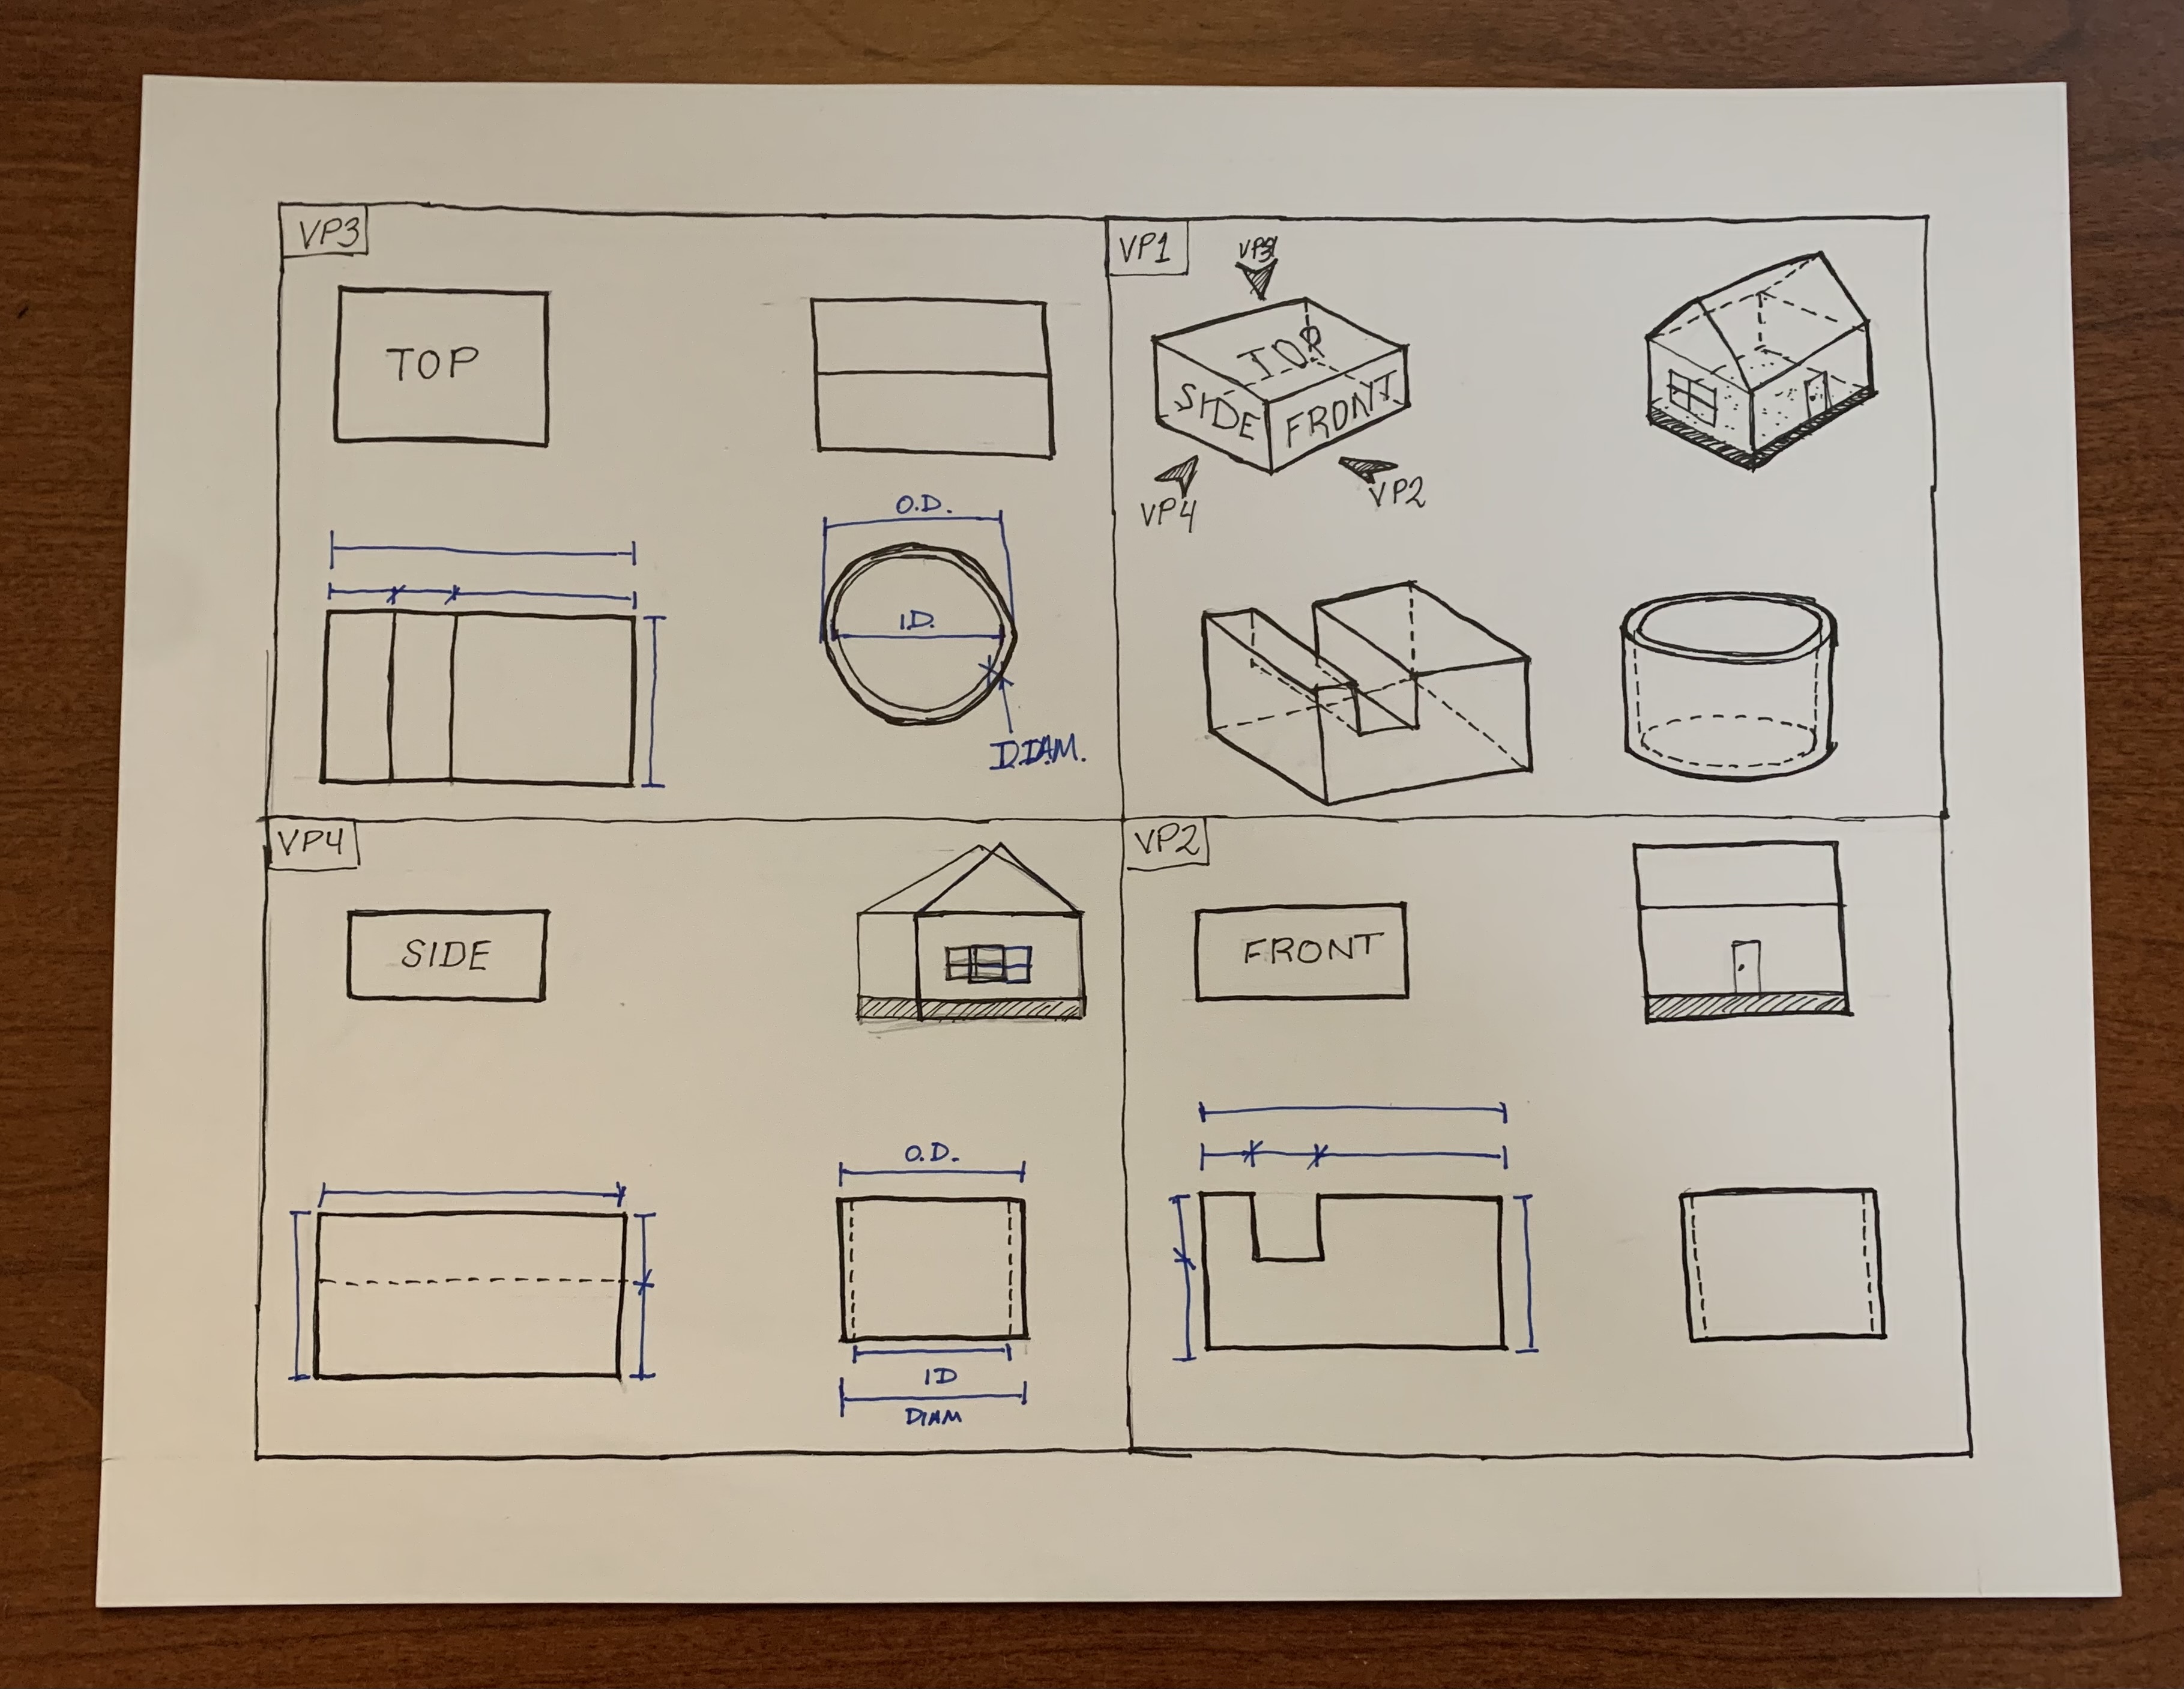 VP3
TOP
O.D.
I.D.
VP1
VP3
TOP
SIDE
FRONT
VP4
VP2
VP4
SIDE
O.D.
ID
DIAM
VP2
FRONT